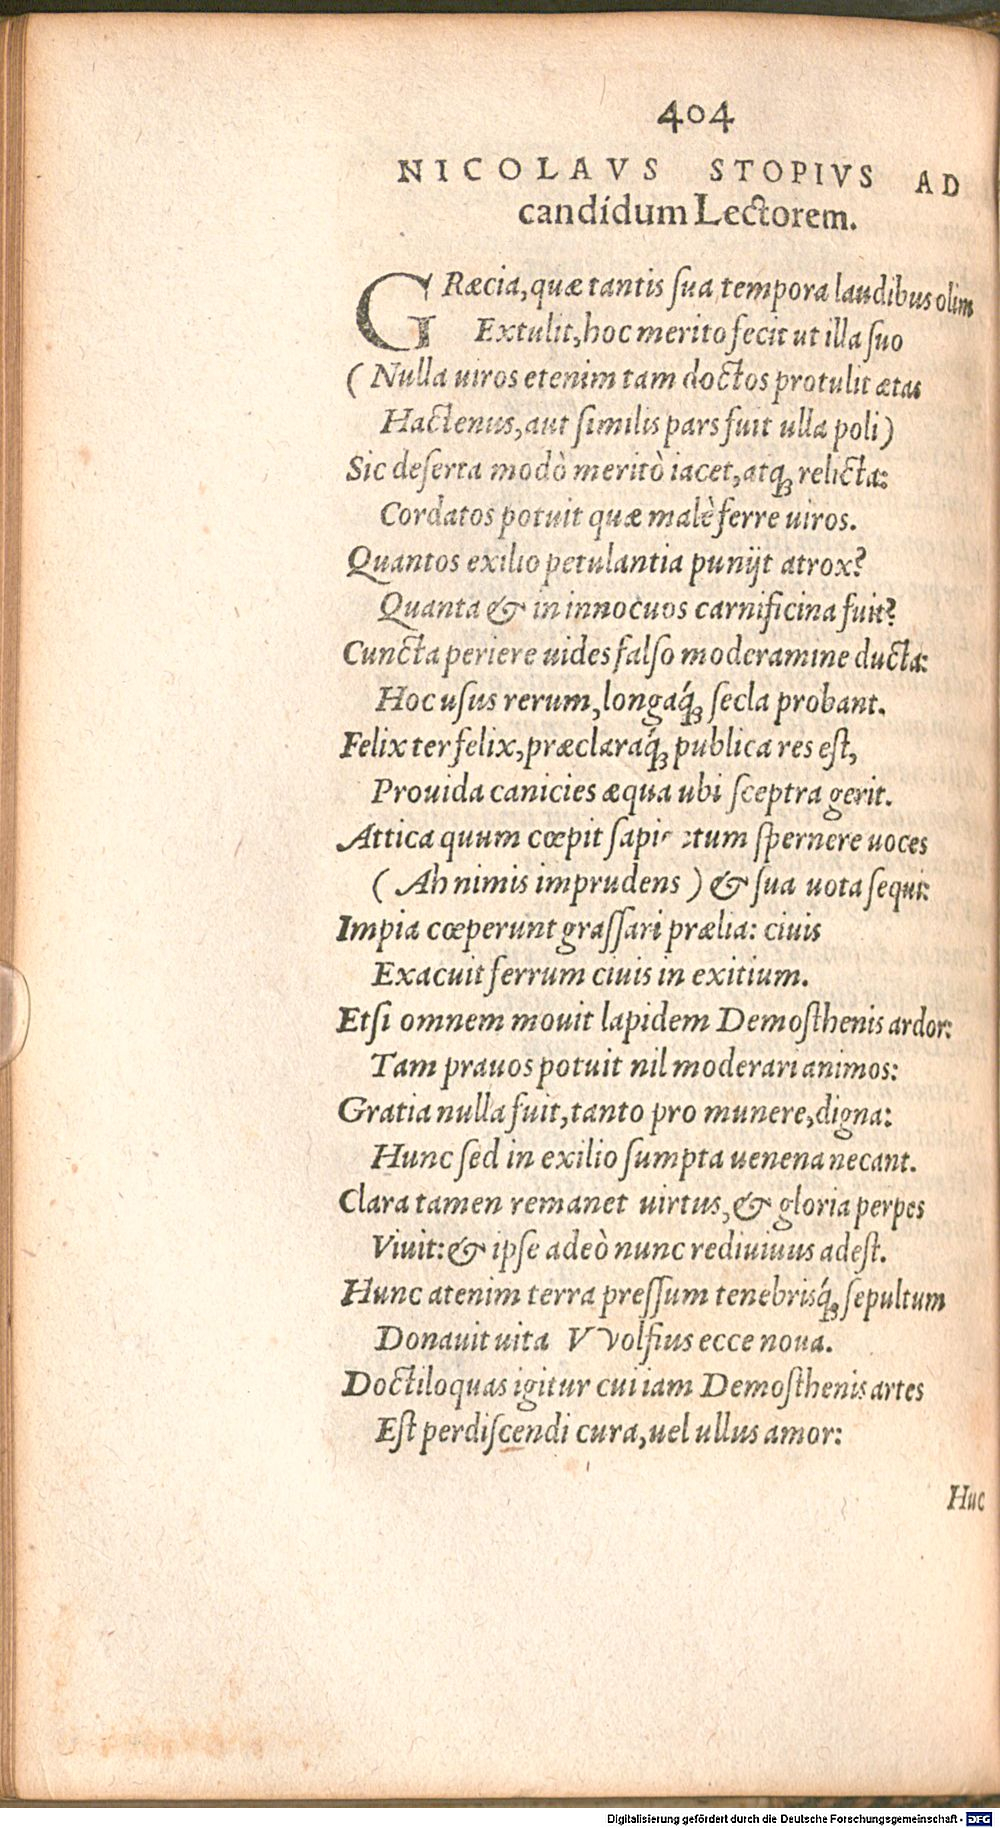 404
NICOLAVS STOPIVS AD
candidum Lectorem.
GRæcia, quæ tantis ſua tempora laudibus olim
Extulit, hoc merito fecit ut illa ſuo
(Nulla uiros etenim tam doctos protulit ætas
Hactenus, aut ſimilis pars fuit ulla poli)
Sic deſerta modò meritò iacet, atqꝫ relicta:
Cordatos potuit quæ malè ferre uiros.
Quantos exilio petulantia punijt atrox?
Quanta & in innocuos carnificina fuit?
Cuncta periere uides falſo moderamine ducta:
Hoc uſus rerum, longaq́ꝫ ſecla probant.
Felix ter felix, præclaraq́ꝫ publica res eſt,
Prouida canicies æqua ubi ſceptra gerit.
Attica quum cœpit ſapi tum ſpernere uoces
(Ah nimis imprudens) & ſua uota ſequi:
Impia cœperunt graſſari prælia: ciuis
Exacuit ferrum ciuis in exitium.
Etſi omnem mouit lapidem Demoſthenis ardor:
Tam prauos potuit nil moderari animos:
Gratia nulla fuit, tanto pro munere, digna:
Hunc ſed in exilio ſumpta uenena necant.
Clara tamen remanet uirtus, & gloria perpes
Viuit: & ipſe adeò nunc rediuiuus adeſt.
Hunc atenim terra preſſum tenebrisq́ꝫ ſepultum
Donauit uita VVolfius ecce noua.
Doctiloquas igitur cui iam Demoſthenis artes
Eſt perdiſcendi cura, uel ullus amor:
Huc
Digitalisierung gefördert durch die Deutsche Forschungsgemeinschaft - DFG